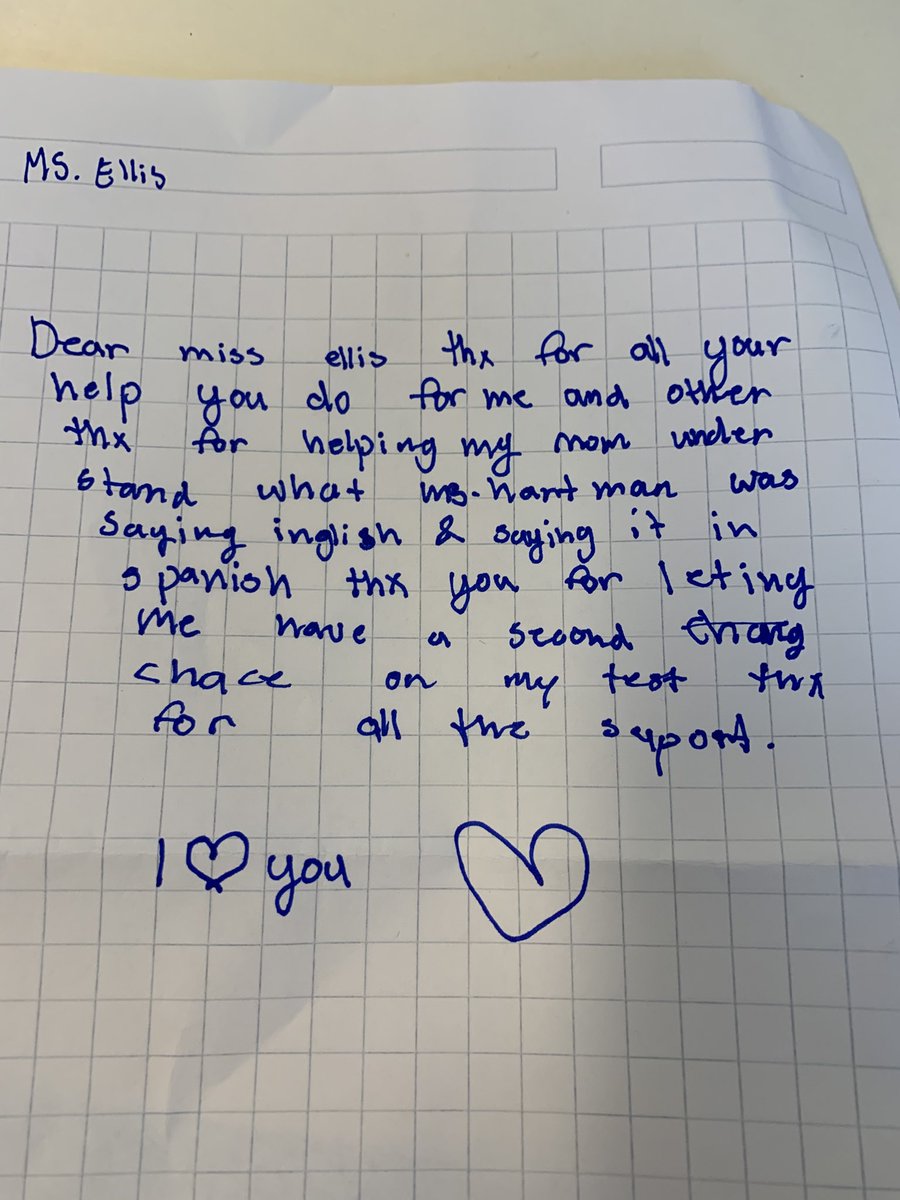 MS. Ellis
Dear miss ellis thx for all your
help you do for me and other
thx for helping my mom under
stand what ms. hartman was
saying inglish & saying it in
spanish thx you for leting
me have a second
chace on my test thx
for all the suport.
I ♡ you